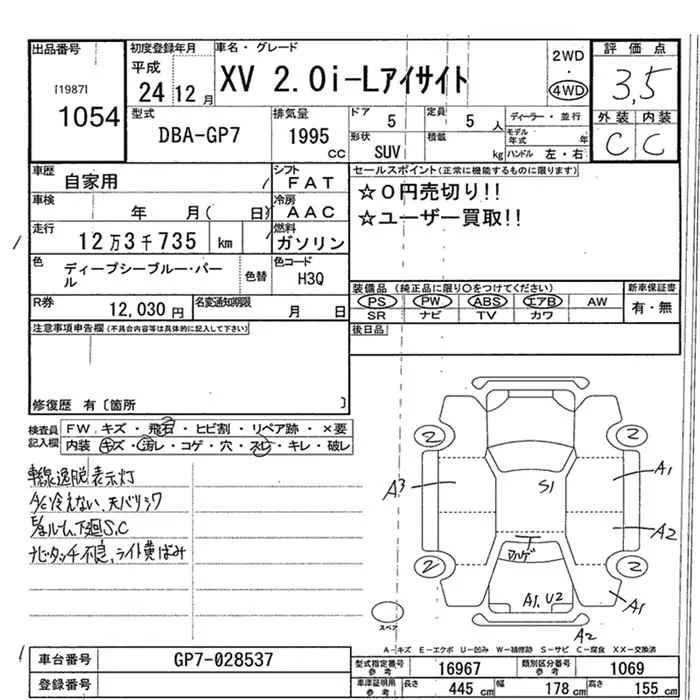 出品番号
[1987]
1054
初度登録年月
平成
24 12 月
車名・グレード
XV 2.0i-Lアイサイト
2WD
・
4WD
評価点
3,5
外装 内装
C C
型式
DBA-GP7
排気量
1995 CC
ドア 5
定員 5 人
形状 SUV
積載 kg
ディーラー・並行
モデル年式 年
ハンドル 左・右
車歴 自家用
シフト FAT
車検 年 月( 日)
冷房 AAC
走行 12万3千735 km
燃料 ガソリン
色 ディープシーブルー・パール
色替
色コード H3Q
R券 12,030 円
名変通知期限 月 日
セールスポイント(正常に機能するものに限ります)
☆0円売切り!!
☆ユーザー買取!!
装備品 (純正品に限り〇をつけてください)
PS PW ABS エアB AW
SR ナビ TV カワ
新車保証書
有・無
後日品
注意事項申告欄(不具合内容等は具体的に記入して下さい)
修復歴 有〔箇所 〕
検査員記入欄
FW キズ・飛石・ヒビ割・リペア跡・×要
内装 キズ・汚れ・コゲ・穴・スレ・キレ・破レ
車線逸脱表示灯
A/C冷えない、天バリシワ
ルーム、下廻S.C
ナビタッチ不良、ライト黄ばみ
2 2
A3 S1 A1
A2
2 2
A1,U2 A1
スペア
A2
A-キズ E-エクボ U-凹み W-補修跡 S-サビ C-腐食 XX-交換済
車台番号 GP7-028537
登録番号
型式指定番号 参考 16967
類別区分番号 参考 1069
車庫証明用 参考 長さ 445 cm 幅 178 cm 高さ 155 cm